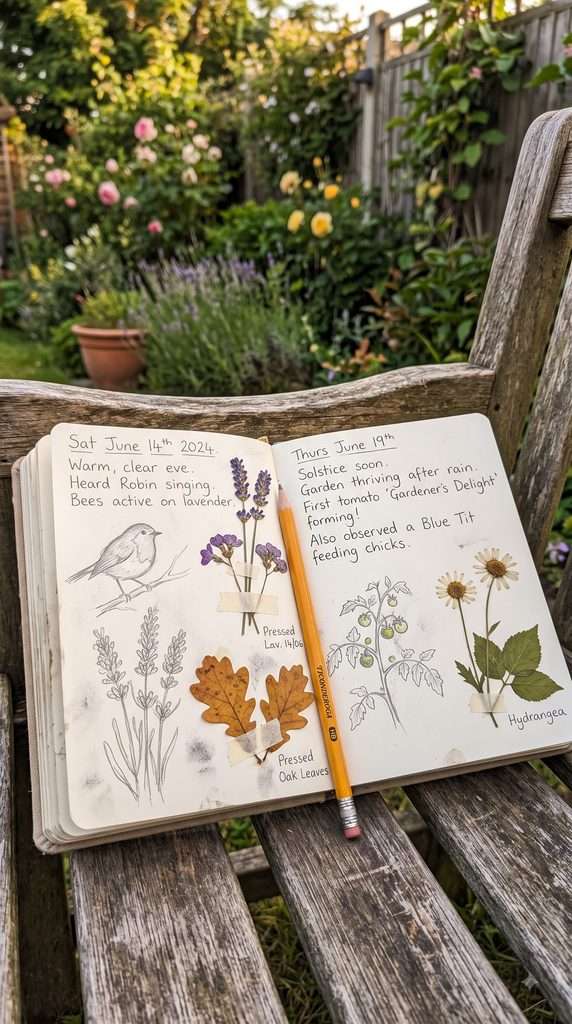 Sat June 14th 2024.
Warm, clear eve.
Heard Robin singing.
Bees active on lavender.
Pressed
Lav. 14/06
Pressed
Oak Leaves
Thurs June 19th
Solstice soon.
Garden thriving after rain.
First tomato 'Gardener's Delight'
forming!
Also observed a Blue Tit
feeding chicks.
Hydrangea
TICONDEROGA